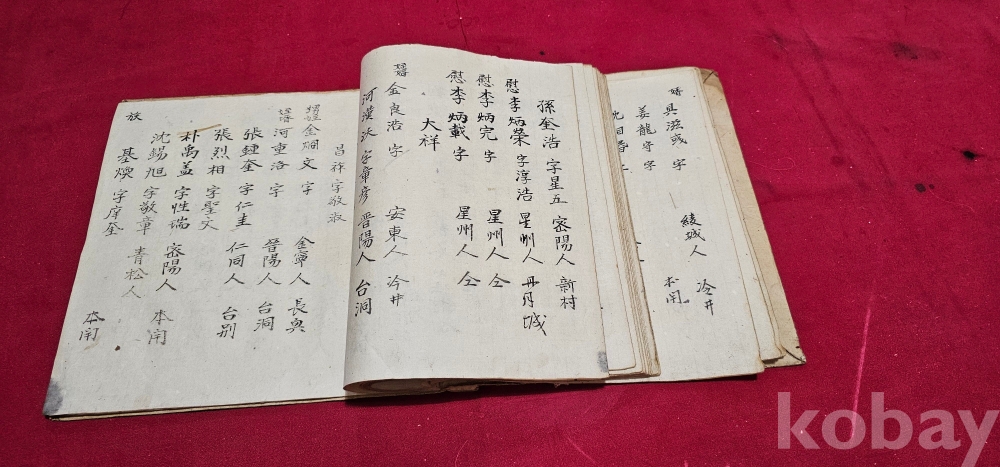 婿 具滋彧 字 綾城人 冷井
姜龍守 字 本洞
孫奎浩 字星五 密陽人 新村
慰 李炳榮 字淳浩 星州人 丹城
慰 李炳完 字 星州人 仝
慰 李炳載 字 星州人 仝
大祥
婿 金良浩 字 安東人 冷井
河漢 字章彦 晋陽人 台洞
昌祚 字敬
金 文 字 金寧人 長奥
河重洛 字 晋陽人 台洞
張鍾奎 字仁圭 仁同人 台別
張烈相 字聖文
朴禹益 字性瑞 密陽人 本洞
沈錫旭 字敬章 青松人
族 基煥 字序奎 本洞
kobay